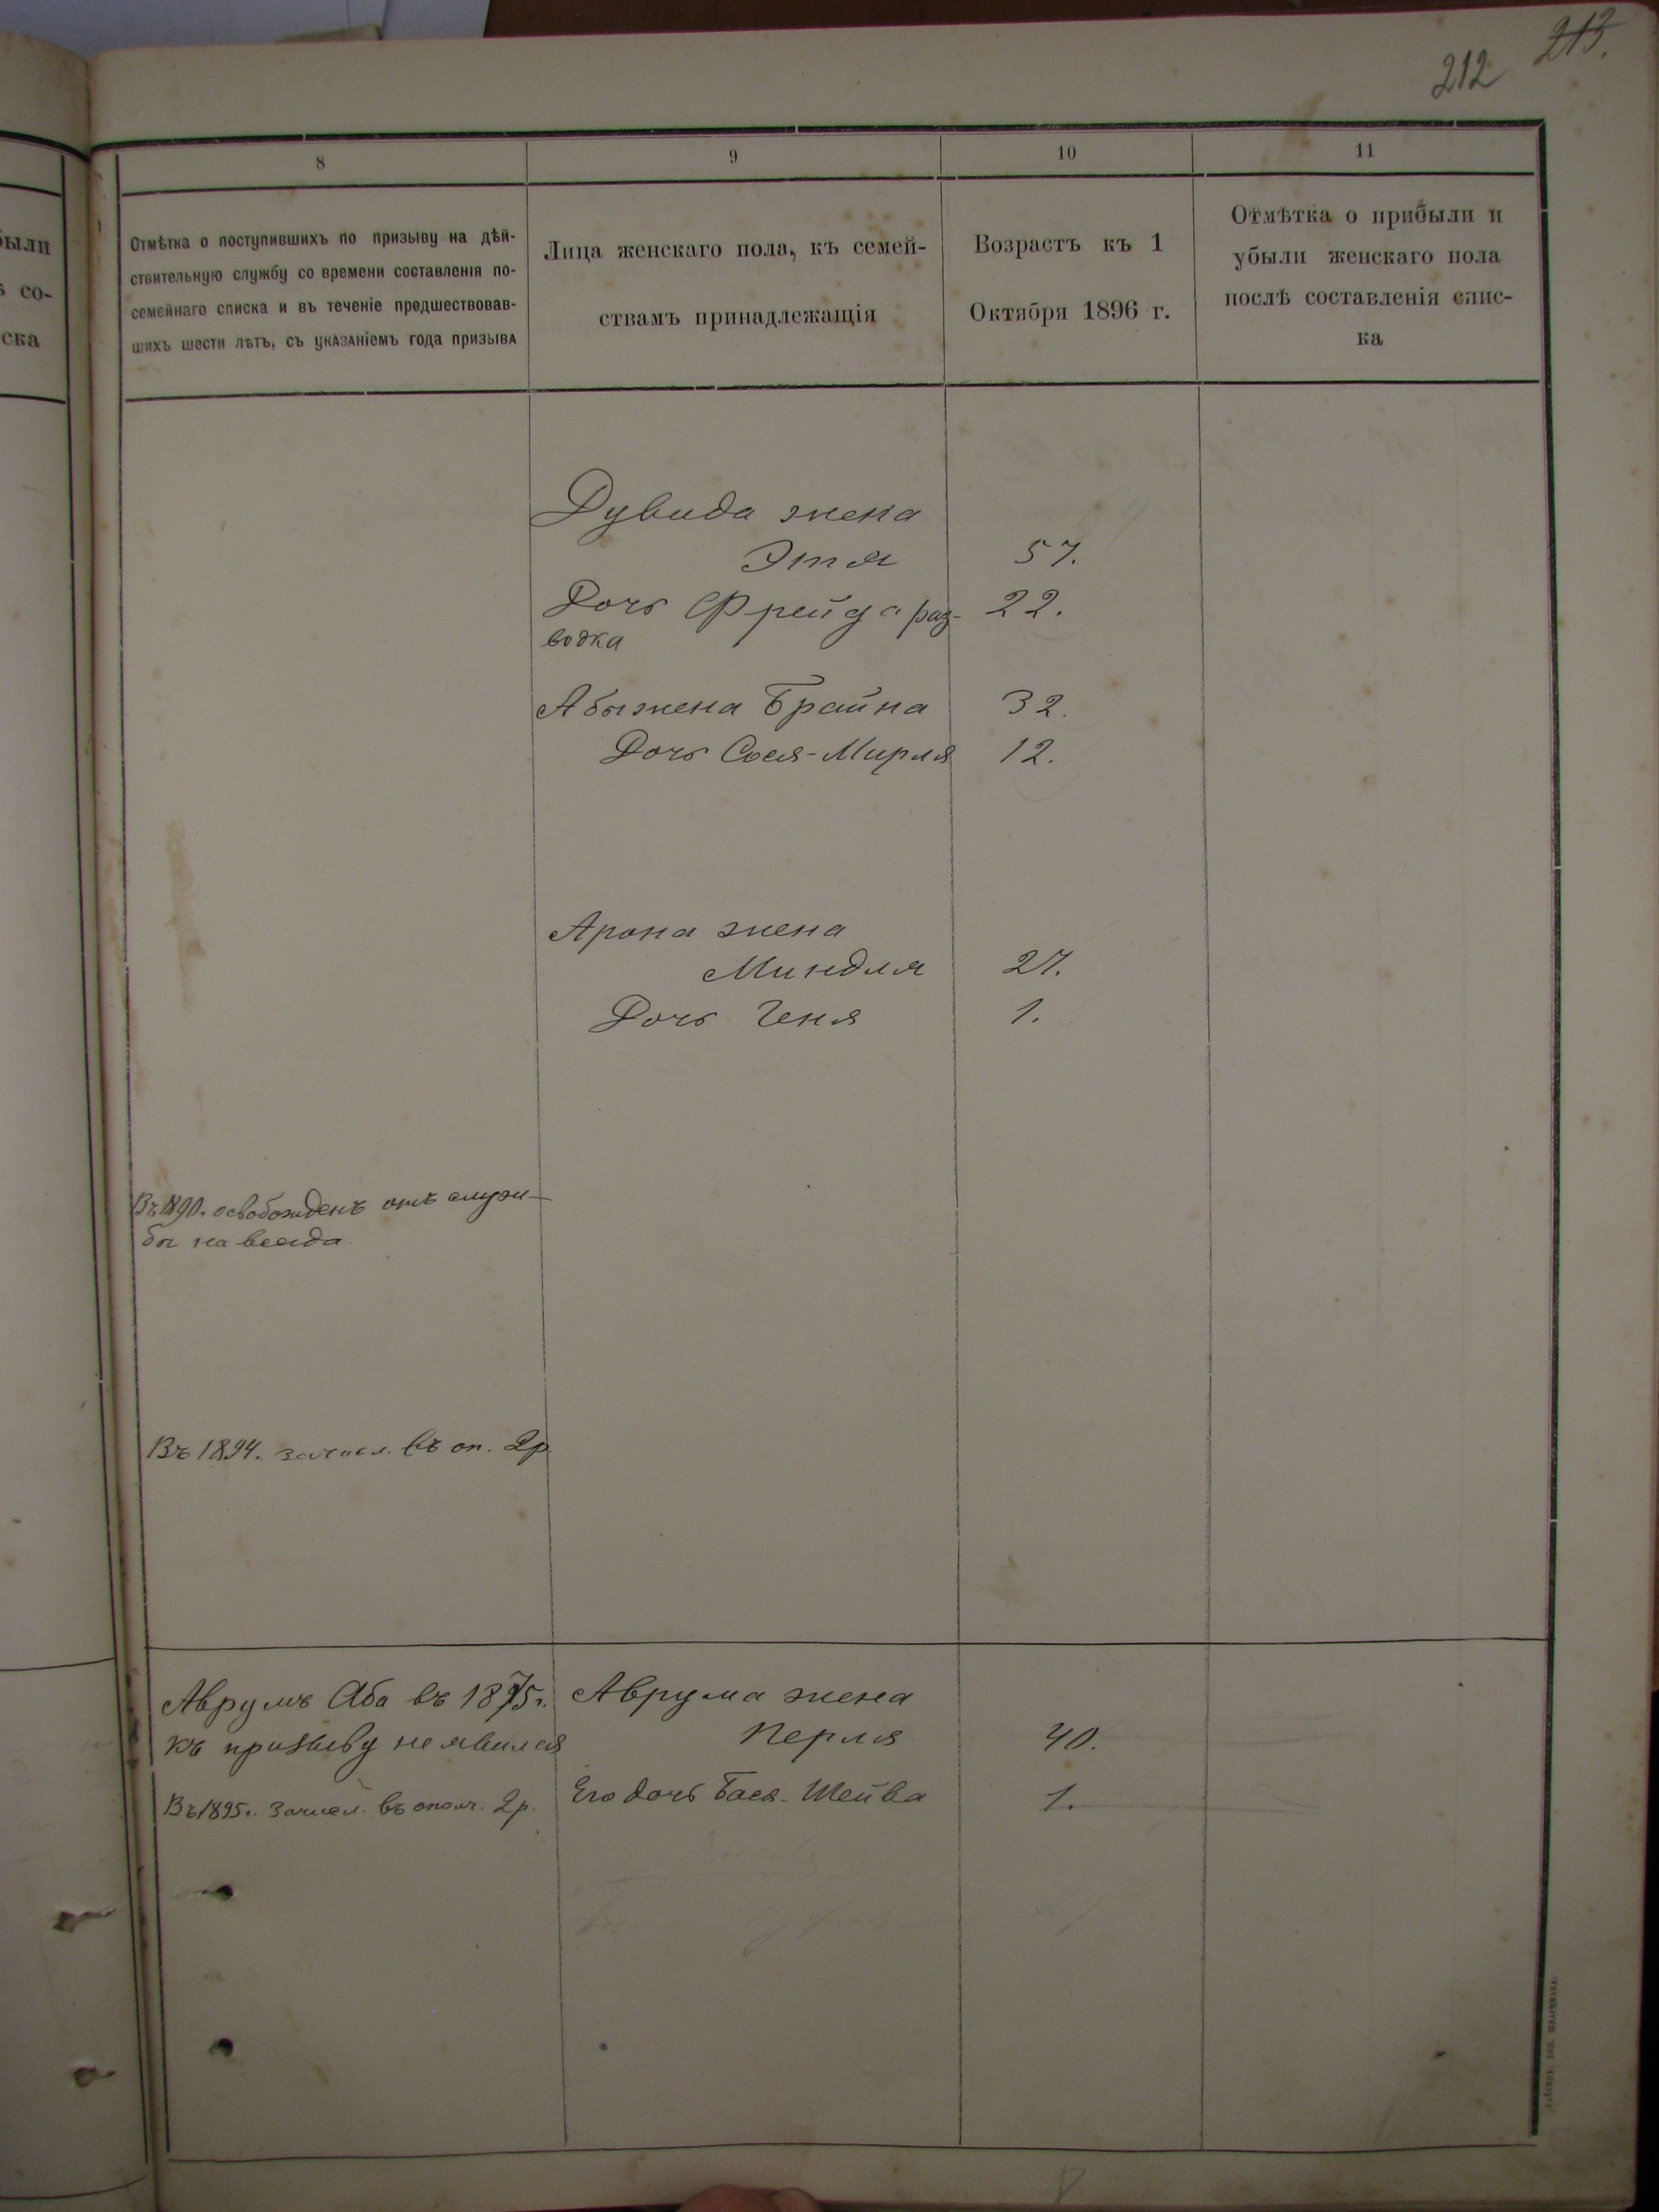 213.
212
8
9
10
11
Отмѣтка о поступившихъ по призыву на дѣй-
ствительную службу со времени составленія по-
семейнаго списка и въ теченіе предшествовав-
шихъ шести лѣтъ, съ указаніемъ года призыва
Лица женскаго пола, къ семей-
ствамъ принадлежащія
Возрастъ къ 1
Октября 1896 г.
Отмѣтка о прибыли и
убыли женскаго пола
послѣ составленія спис-
ка
были
со-
ска
Дувида жена
Этя 57.
Дочь Фрейда раз- 22.
водка
Абы жена Брайна 32.
Дочь Сося-Мирля 12.
Арона жена
Миндля 27.
Дочь Геня 1.
Въ 1890г. освобожденъ отъ служ-
бы на всегда.
Въ 1894. зачисл. въ оп. 2р.
Аврумъ Аба въ 1875г.
къ призыву не явился
Въ 1895г. Зачисл. въ ополч. 2р.
Аврума жена
Перля 40.
Его дочь Бася-Шейва 1.